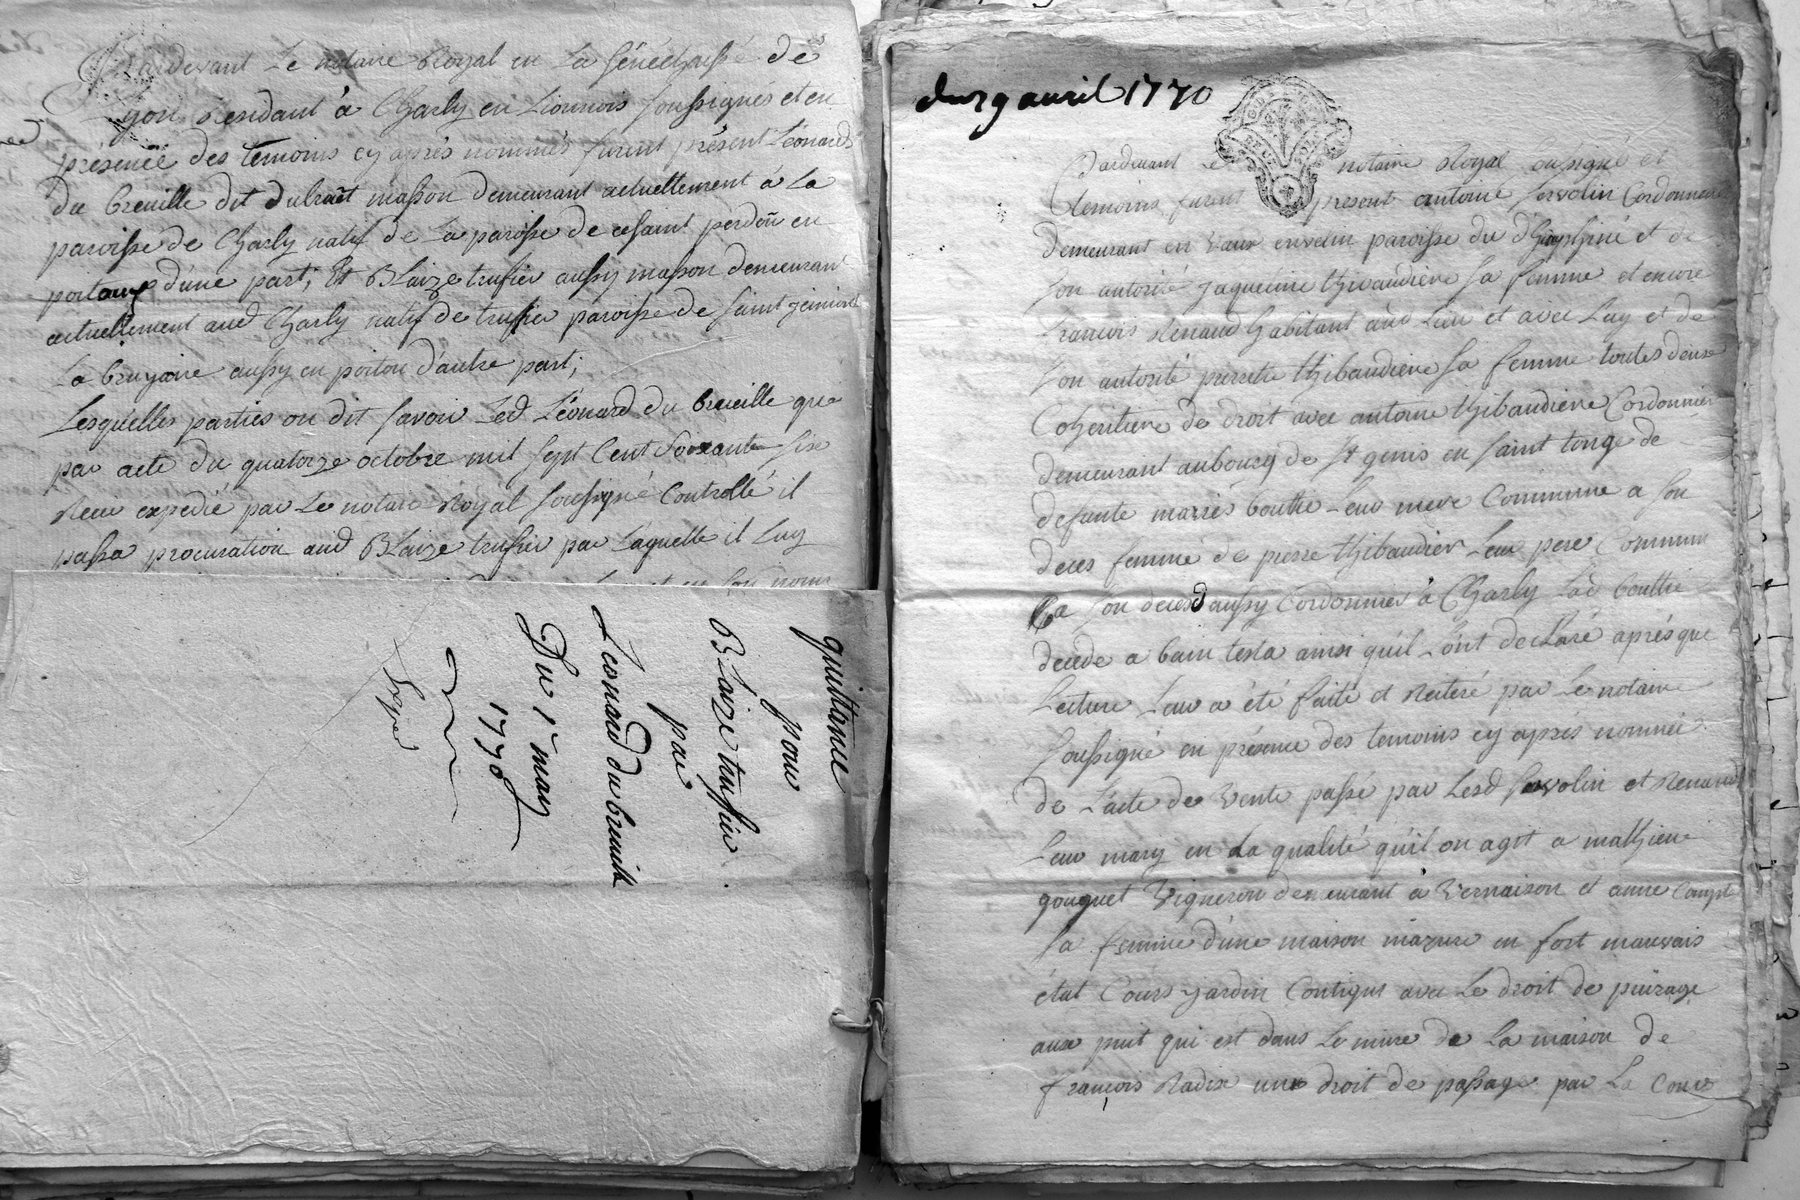 Pardevant Le notaire Royal en La sénéchaussé de
Lyon Residant à Charly en Lionnois soussignés et en
présence des temoins cy aprés nommés furent présent Léonard
du breuille dit dubraët masson demeurant actuellement a La
paroisse de Charly natif de La paroisse de
poitoux d'une part; Et Blaize trufier aussy masson demeurant
actuellement aud Charly natif de trufier paroisse de saint
La bruyaire aussy en poitou d'autre part;
Lesquelles parties on dit savoir Led Léonard du breueille que
par acte du quatorze octobre mil sept Cent soixante six
Receu expedié par Le notaire Royal soussigné Controllé il
passa procuration aud Blaize trufier par Laquelle il Luy
quittance
pour
Blaize trufier
par
Leonard du breuille
Du 1er may
1770
du 29 avril 1770
Pardevant Le notaire Royal sousigné et
temoins furent présent antoine servolin Cordonnier
demeurant en Vaux envelin paroisse du d'hauphiné et de
son autorité jaqueme thibaudiere sa femme et encore
françois Renaud habitant aud Lieu et avec Luy et de
son autorité pierrette thibaudiere sa femme toutes deux
Coheritiere de droit avec antoine thibaudiere Cordonnier
demeurant aubourg de st genis en saint tonge de
defunte boutte Leur mere Commune a son
deces femme de pierre thibaudier Leur pere Commun
a son deces aussy Cordonnier à Charly Lad bouttie
decede a bain testa ainsi qu'il L'ont declaré aprés que
Lecture Leur a été faite et Reiteré par Le notaire
soussigné en présence des temoins cy aprés nommée
de L'acte de Vente passé par Lesd servolin et Renaud
Leur mary en La qualité qu'il on agit a mathieu
gouquet Vigneron demeurant à Vernaison et anne Compte
sa femme d'une maison mazure en fort mauvais
état Cours jardin Contigus avec Le droit de puizage
aux puit qui est dans Le mure de La maison de
françois Radix un droit de passage par La Cour